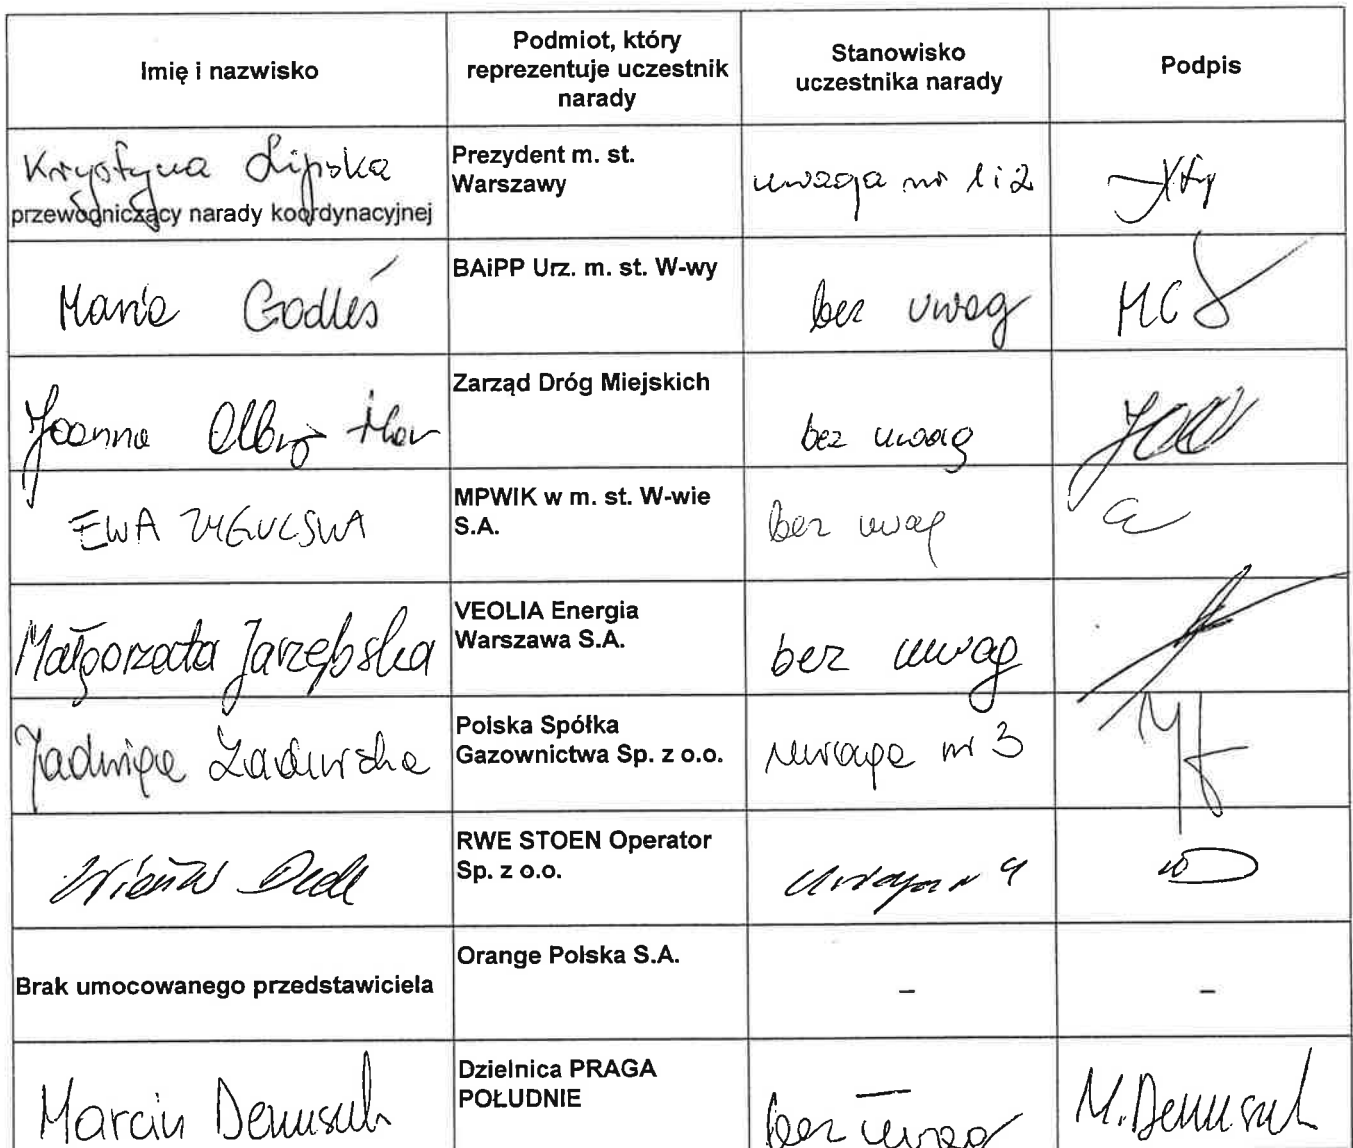 Imię i nazwisko
Podmiot, który
reprezentuje uczestnik
narady
Stanowisko
uczestnika narady
Podpis
Krystyna Lipska
przewodniczący narady koordynacyjnej
Prezydent m. st.
Warszawy
uwaga nr 1 i 2
Maria Godleś
BAiPP Urz. m. st. W-wy
bez uwag
Joanna
Zarząd Dróg Miejskich
bez uwag
EWA
MPWIK w m. st. W-wie
S.A.
bez uwag
Małgorzata Jarzębska
VEOLIA Energia
Warszawa S.A.
bez uwag
Jadwiga
Polska Spółka
Gazownictwa Sp. z o.o.
uwaga nr 3
RWE STOEN Operator
Sp. z o.o.
uwaga nr 4
Brak umocowanego przedstawiciela
Orange Polska S.A.
–
–
Marcin
Dzielnica PRAGA
POŁUDNIE
bez uwag
M.